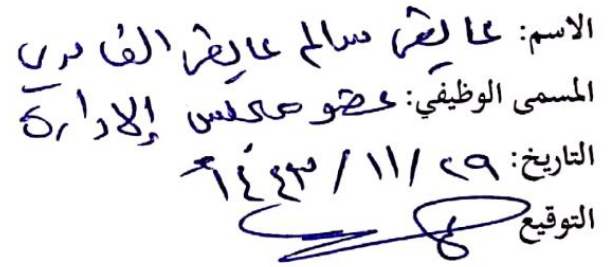 الاسم: عايض سالم عايض الغامدي
المسمى الوظيفي: عضو مجلس الإدارة
التاريخ: ٢٩ / ١١ / ١٤٤٣هـ
التوقيع